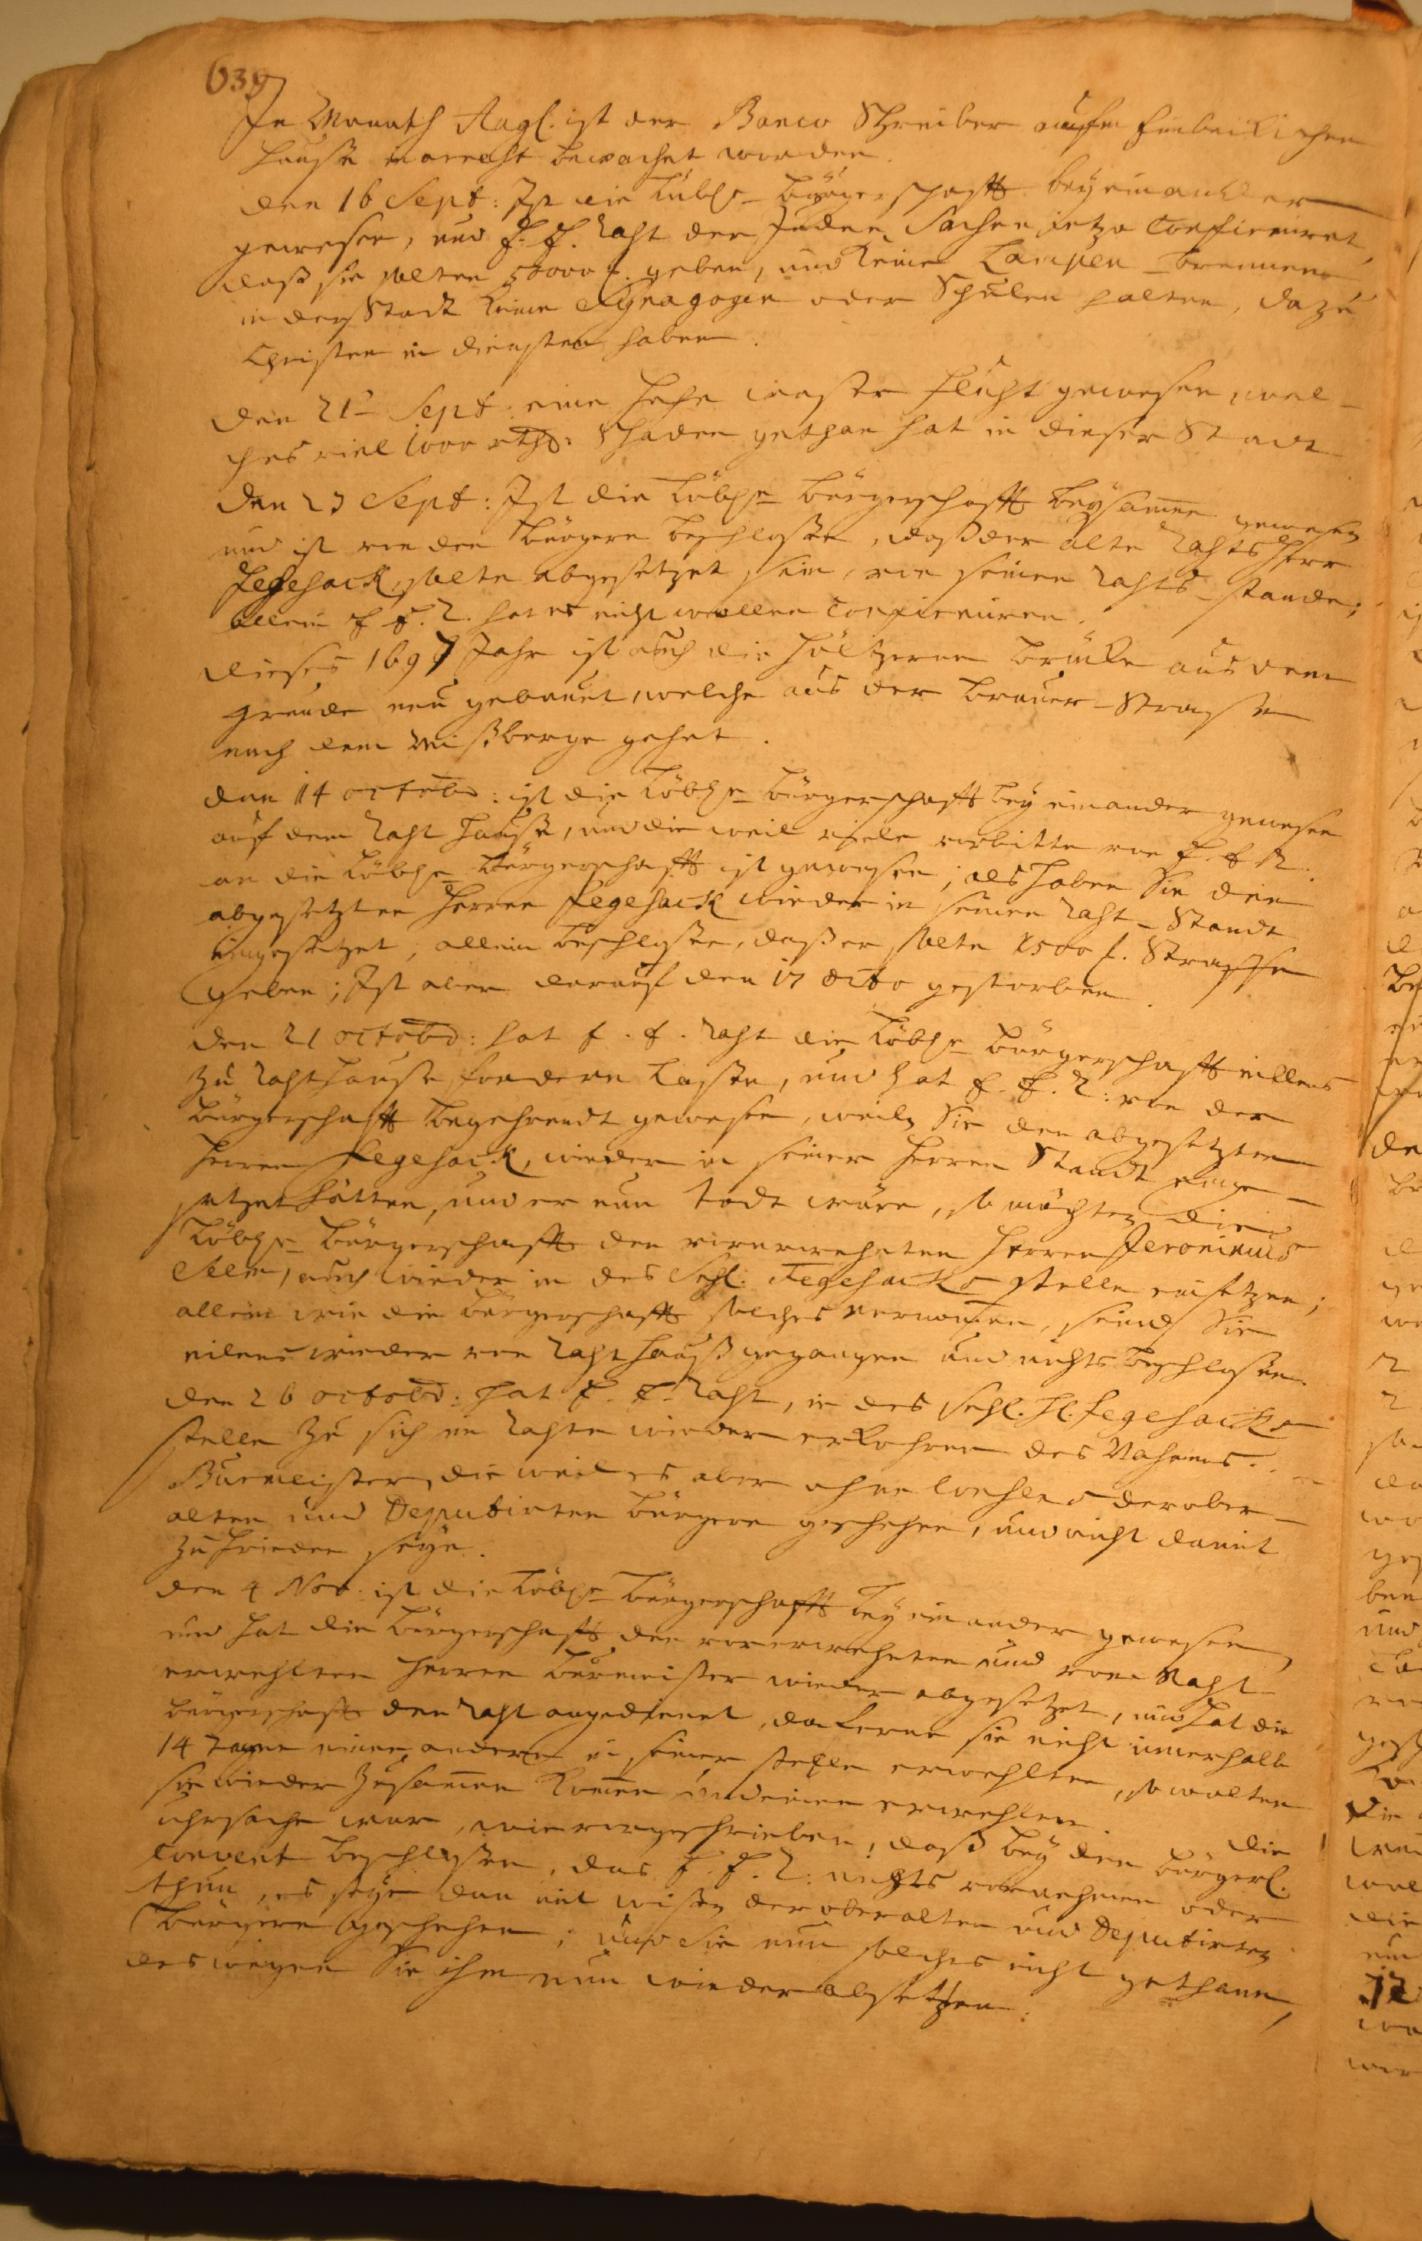 639
In Monath Aug. ist der Banco Schreiber aufm Einbeckischen
Hause bewachet worden.
den 16 Sept: Ist die Löbl. Bürgerschafft bey einander
gewesen, und E. E. Raht der Juden Sachen jetzo confirmiret,
daß sie solten 50000 geben, und keine Lampen brennen
in der Stadt keine Synagogen oder Schulen halten, dazu
Christen in diensten haben.
den 21 Sept: eine hohe wasser fluht gewesen, wel-
ches viel 1000 rthl: Schaden gethan hat in dieser Stadt
den 23 Sept: Ist die Löbl. Bürgerschafft beysamen gewesen
und ist von den Bürgern beschlossen, daß der alte Rahts Herr
Fegesack, solte abgesetzet sein, von seinen Rahts-stande;
allein E. E. R. hat es nicht wollen confirmiren.
dieses 1697 Jahr ist auch die höltzerne brücke aus dem
grunde neu gebauet, welche aus der Brauer-Strasse
nach dem Wißberge gehet.
den 14 octobr: ist die Löbl. Bürgerschafft bey einander gewesen
auf dem Raht Hause, und die weil viele vorbitte von E. E. R.
an die Löbl. Bürgerschafft ist gewesen; als haben Sie den
abgesetzten Herren Fegesack wieder in seinen Raht-Standt
eingesetzet, allein beschlossen, daß er solte 1500 Straffe
geben; Ist aber darauf den 17 octo gestorben.
den 21 octobr: hat E. E. Raht die Löbl. Bürgerschafft eillens
zu Rahthause fordern lassen, und hat E. E. R: von der
Bürgerschafft begehrendt gewesen, weiln Sie den abgesetzten
Herren Fegesack, wieder in seinen Herren Standt einge-
setzet hätten, und er nun todt wäre, so möchten die
Löbl. Bürgerschafft den vorerwehnten Herren Jeronimus
Seem, auch wieder in des Sehl: Fegesacks stelle einsetzen;
allein wie die Bürgerschafft solches vernomen, seind Sie
eilens wieder von Rahthauß gegangen und nichts beschlossen.
den 26 octobr: hat E. E. Raht, in des Sehl. H. Fegesacks
stelle zu sich in Rahte wieder erkohren des Nahmens
Burmeister, die weil es aber ohne der ober-
alten und Deputirten Bürgere geschehen, und nicht damit
zu frieden seyn.
den 4 Nov: ist die Löbl. Bürgerschafft bey einander gewesen,
und hat die Bürgerschafft den vorerwehnten und vom Raht
erwehlten Herren Burmeister wieder abgesetzet, und hat die
Bürgerschafft den Raht angedienet, daferne sie nicht innerhalb
14 Tagen einen andern in seiner stelle erwehlten, so wolten
sie wieder zusamen komen und einen erwehlen. die
uhrsache war, wie vorgeschrieben, daß bey den Bürgerl.
Convent beschlossen, das E. E. R: nichts vornehmen oder
thun, es seye dan mit wissen der oberalten und Deputirten
Bürgere geschehen; und Sie nun solches nicht gethann,
deswegen Sie ihm nun wieder absetzen.